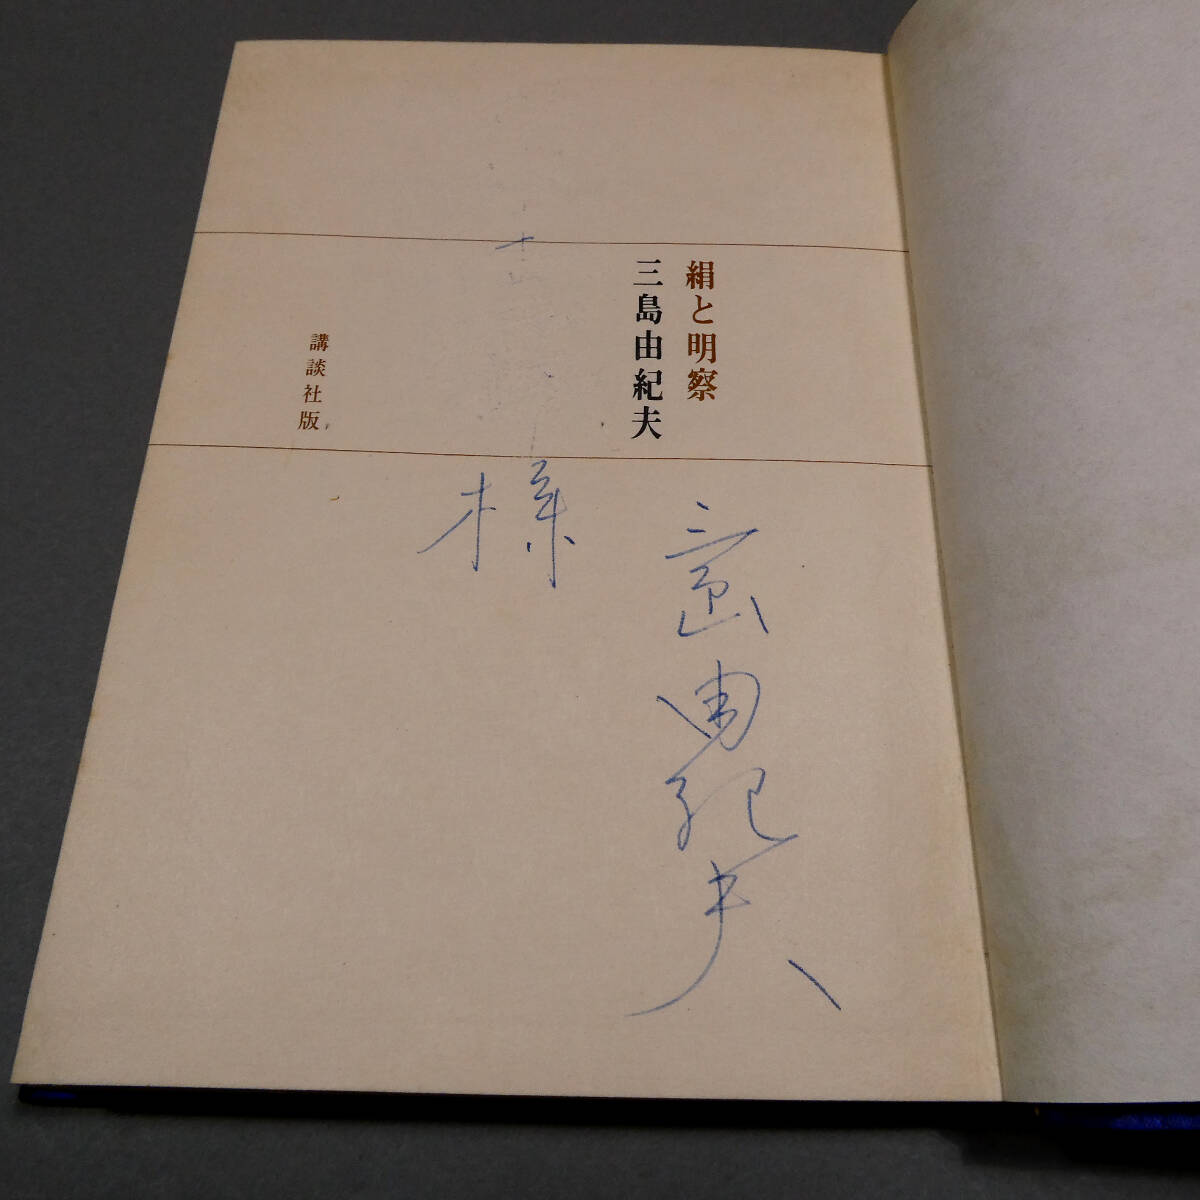 絹と明察
三島由紀夫
講談社版
三島由紀夫
様